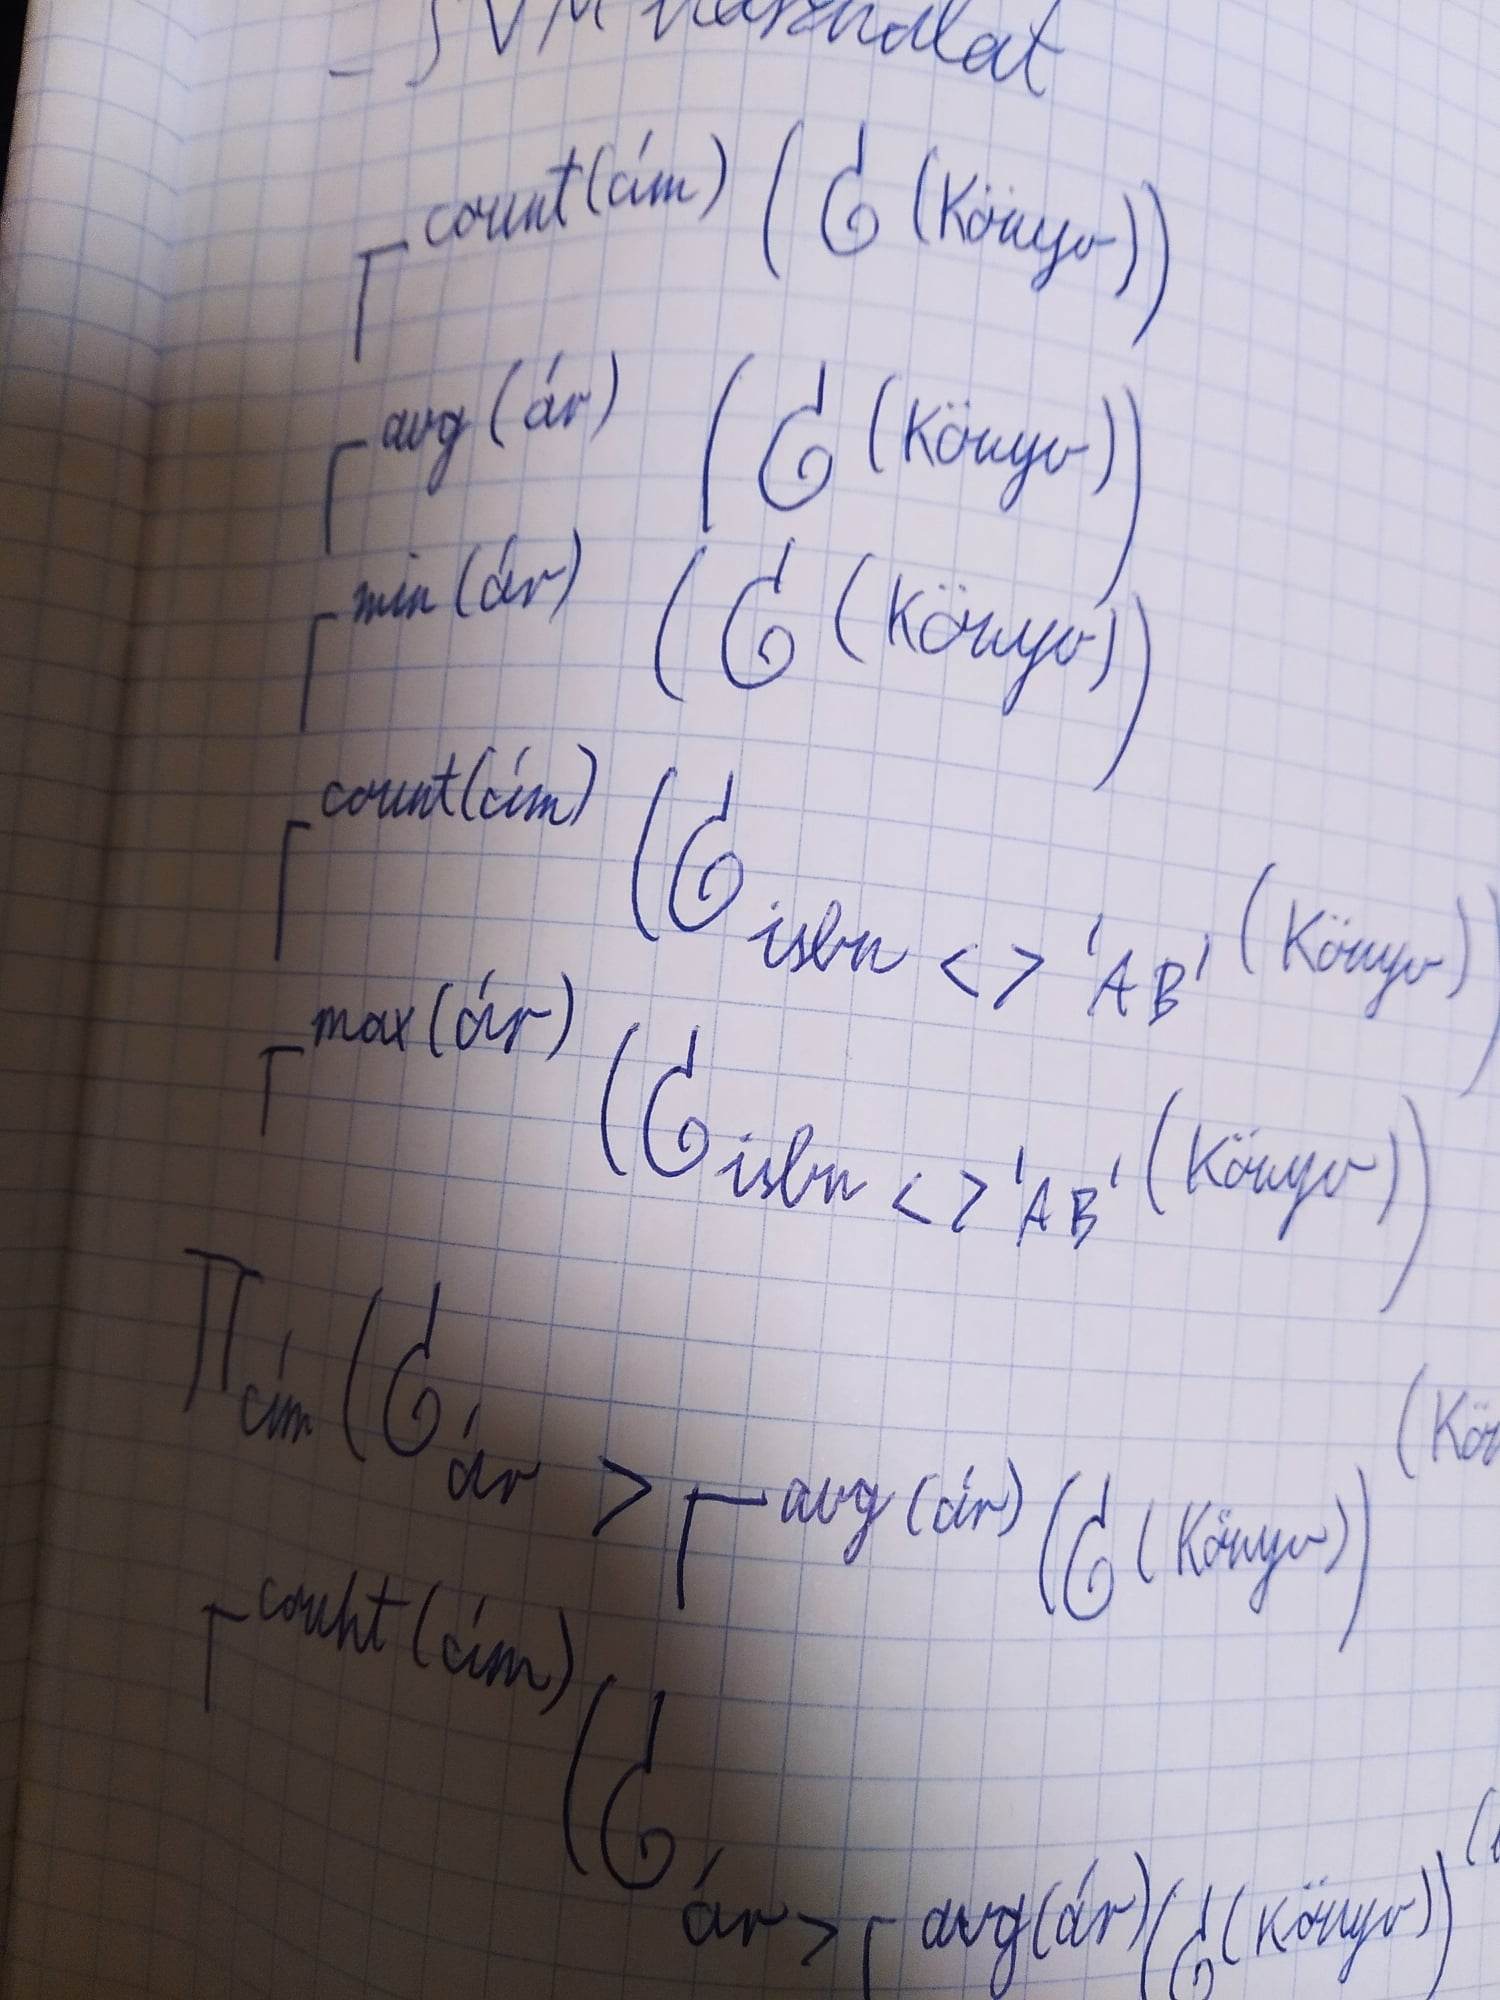 - JVM használat
Γ count(cím) (σ (Könyv))
Γ avg(ár) (σ (Könyv))
Γ min(ár) (σ (Könyv))
Γ count(cím) (σ isbn <> 'AB' (Könyv))
Γ max(ár) (σ isbn <> 'AB' (Könyv))
Π cím (σ ár > Γ avg(ár) (σ (Könyv)) (Kön
Γ count(cím) (σ ár > Γ avg(ár) (σ (Könyv)) (